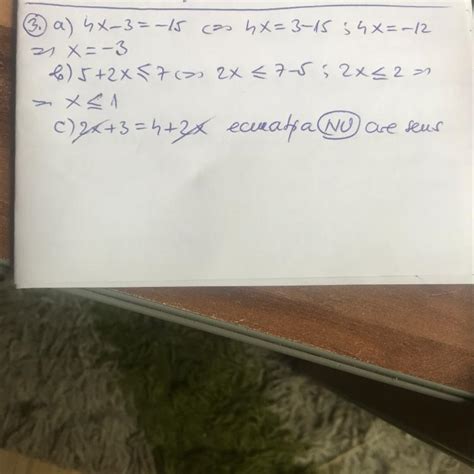 3. a) 4x-3=-15 <=> 4x=3-15 ; 4x=-12
=> x=-3
b) 5+2x≤7 <=> 2x ≤ 7-5 ; 2x≤2 =>
=> x≤1
c) 2x+3=4+2x ecuația NU are sens